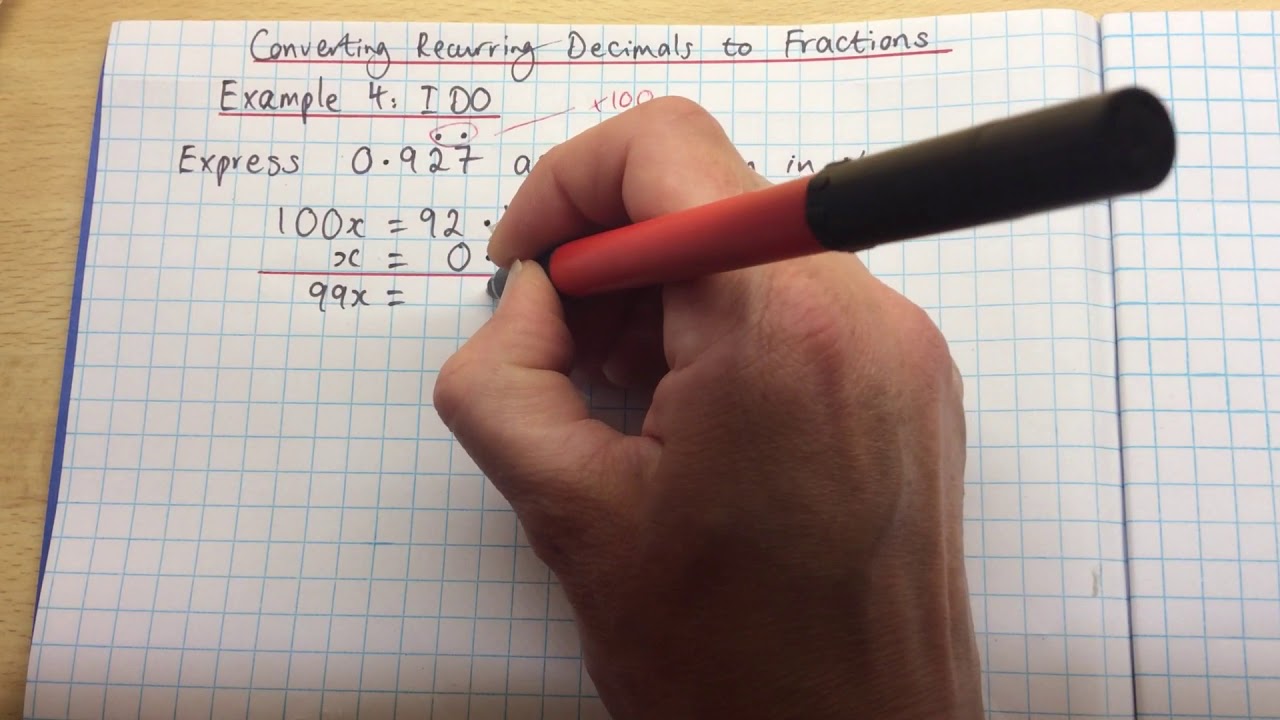 Converting Recurring Decimals to Fractions
Example 4: I DO
×100
Express 0.92̇7̇ in
100x = 92.
x = 0.
99x =